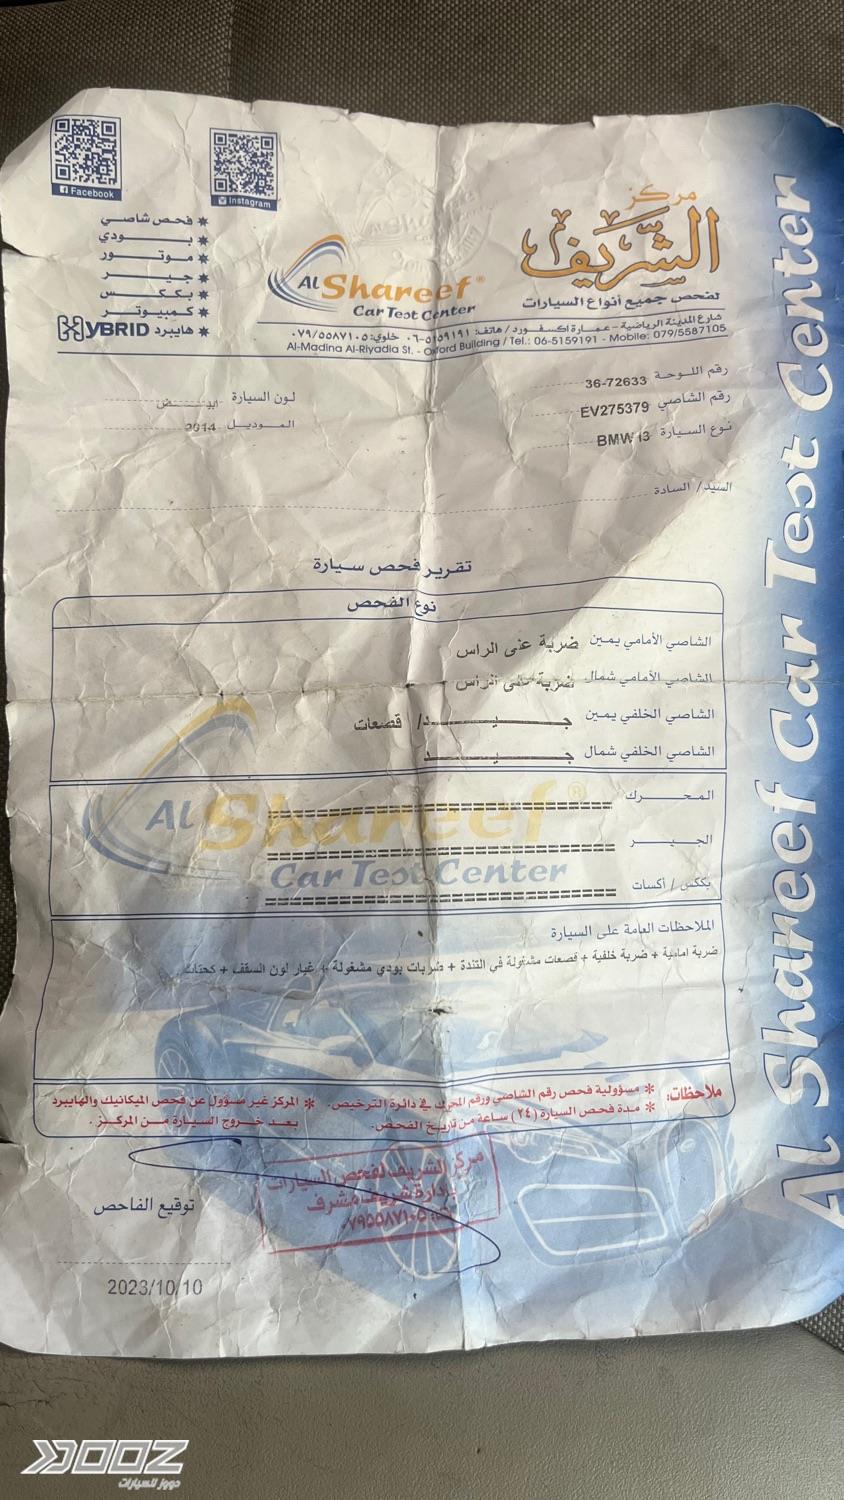 Facebook
Instagram
✷ فحص شاصي
✷ بــودي
✷ موتور
✷ جير
✷ بكـكس
✷ كمبيوتر
✷ هايبرد HYBRID
مركز
الشريف
لفحص جميع أنواع السيارات
AL Shareef®
Car Test Center
شارع المدينة الرياضية - عمارة اكسفورد / هاتف: ٥١٥٩١٩١-٠٦ خلوي: ٠٧٩/٥٥٨٧١٠٥
Al-Madina Al-Riyadia St. - Oxford Building / Tel.: 06-5159191 - Mobile: 079/5587105
رقم اللوحة 36-72633
رقم الشاصي EV275379
نوع السيارة BMW I3
لون السيارة ابيض
الموديل 2014
السيد/ السادة
تقرير فحص سيارة
نوع الفحص
الشاصي الأمامي يمين ضربة على الراس
الشاصي الأمامي شمال ضربة على الراس
الشاصي الخلفي يمين جيد/ قصعات
الشاصي الخلفي شمال جيد
المحرك
الجير
بككس / أكسات
AL Shareef®
Car Test Center
الملاحظات العامة على السيارة
ضربة امامية + ضربة خلفية + قصعات مشغولة في التندة + ضربات بودي مشغولة + غيار لون السقف + كحتات
ملاحظات: * مسؤولية فحص رقم الشاصي ورقم المحرك في دائرة الترخيص. * المركز غير مسؤول عن فحص الميكانيك والهايبرد
* مدة فحص السيارة (٢٤) ساعة من تاريخ الفحص. بعد خروج السيارة من المركز.
مركز الشريف لفحص السيارات
بإدارة شريف مشرف
٠٧٩٥٥٨٧١٠٥
توقيع الفاحص
2023/10/10
Al Shareef Car Test Center
DOOZ
دووز للسيارات